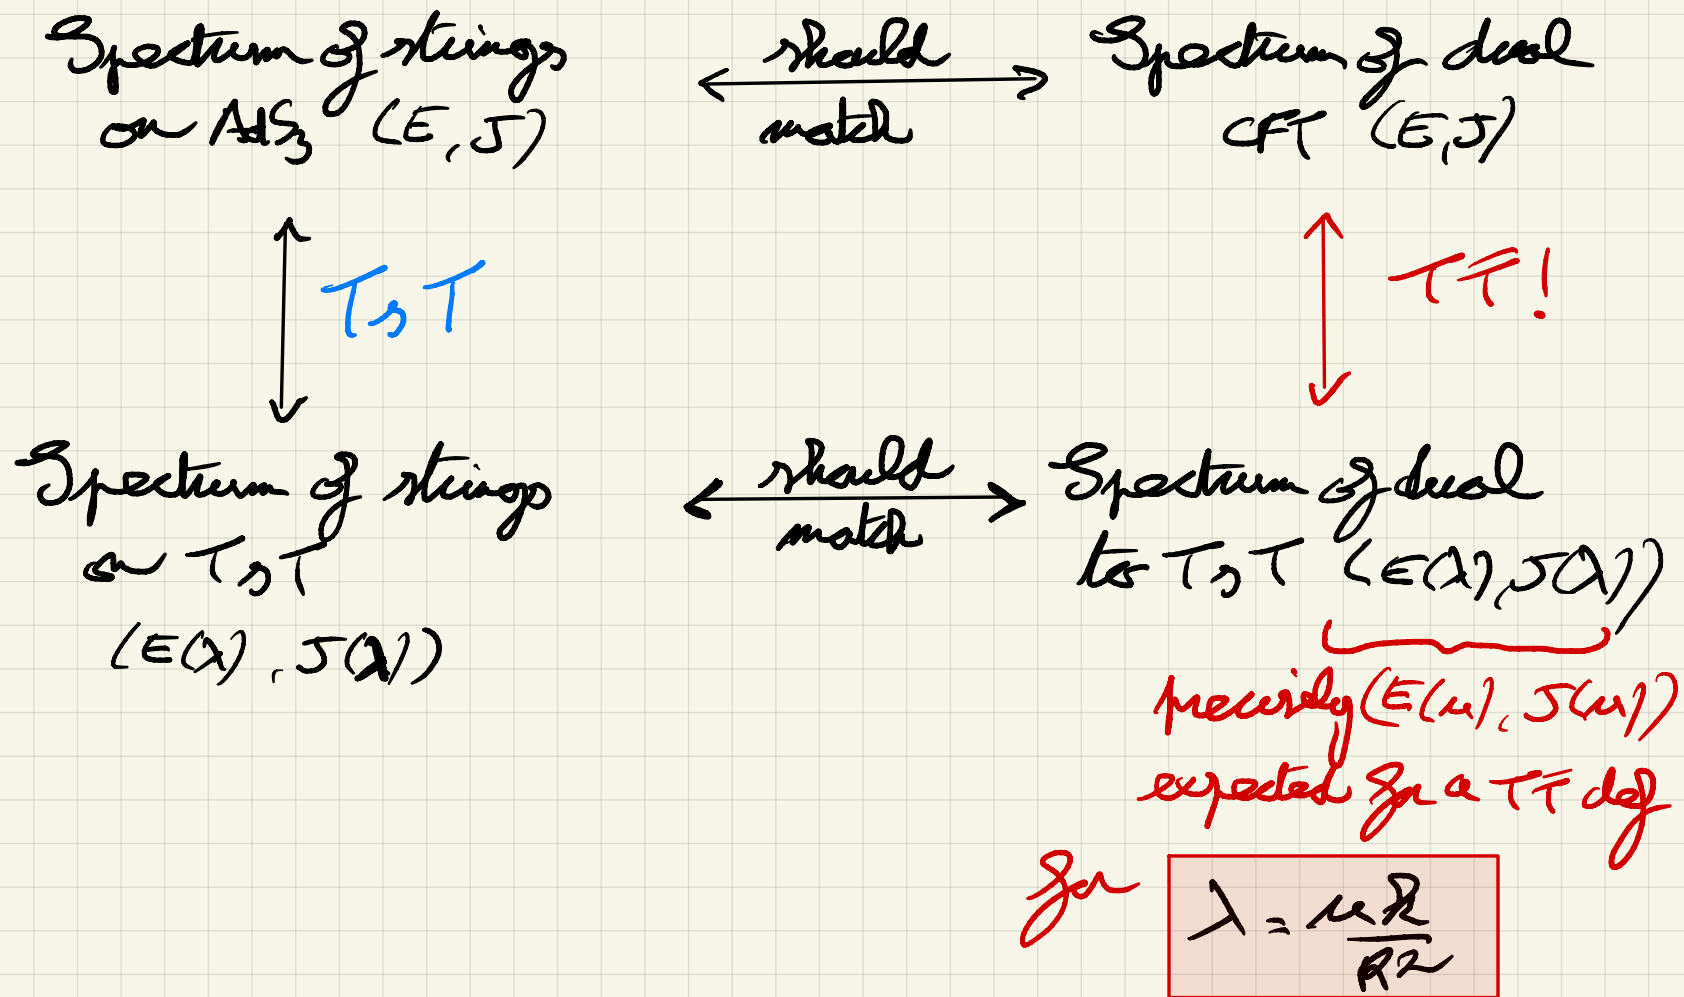 Spectrum of strings
on AdS₃ (E, J)
should
match
Spectrum of dual
CFT (E, J)
TsT
TT̄!
Spectrum of strings
on TsT
(E(λ), J(λ))
should
match
Spectrum of dual
to TsT (E(λ), J(λ))
precisely (E(μ), J(μ))
expected for a TT̄ def
for
λ = μk/R²